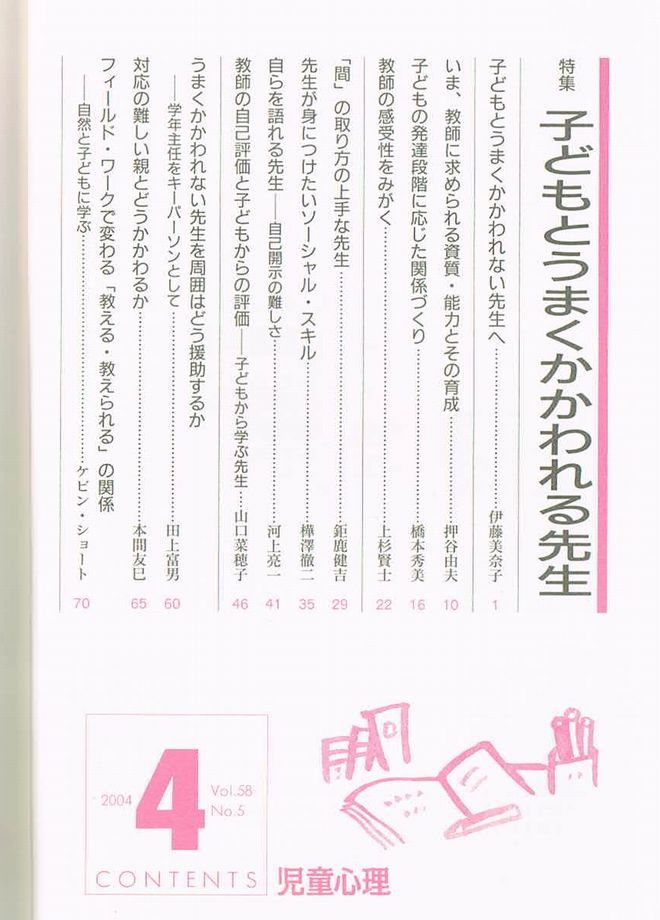 特集 子どもとうまくかかわれる先生
子どもとうまくかかわれない先生へ……伊藤美奈子 1
いま、教師に求められる資質・能力とその育成……押谷由夫 10
子どもの発達段階に応じた関係づくり……橋本秀美 16
教師の感受性をみがく……上杉賢士 22
「間」の取り方の上手な先生……鉅鹿健吉 29
先生が身につけたいソーシャル・スキル……樺澤徹二 35
自らを語れる先生——自己開示の難しさ……河上亮一 41
教師の自己評価と子どもからの評価——子どもから学ぶ先生…山口菜穂子 46
うまくかかわれない先生を周囲はどう援助するか
——学年主任をキーパーソンとして……田上富男 60
対応の難しい親とどうかかわるか……本間友巳 65
フィールド・ワークで変わる「教える・教えられる」の関係
——自然と子どもに学ぶ……ケビン・ショート 70
2004 4 Vol.58
No.5
CONTENTS
児童心理